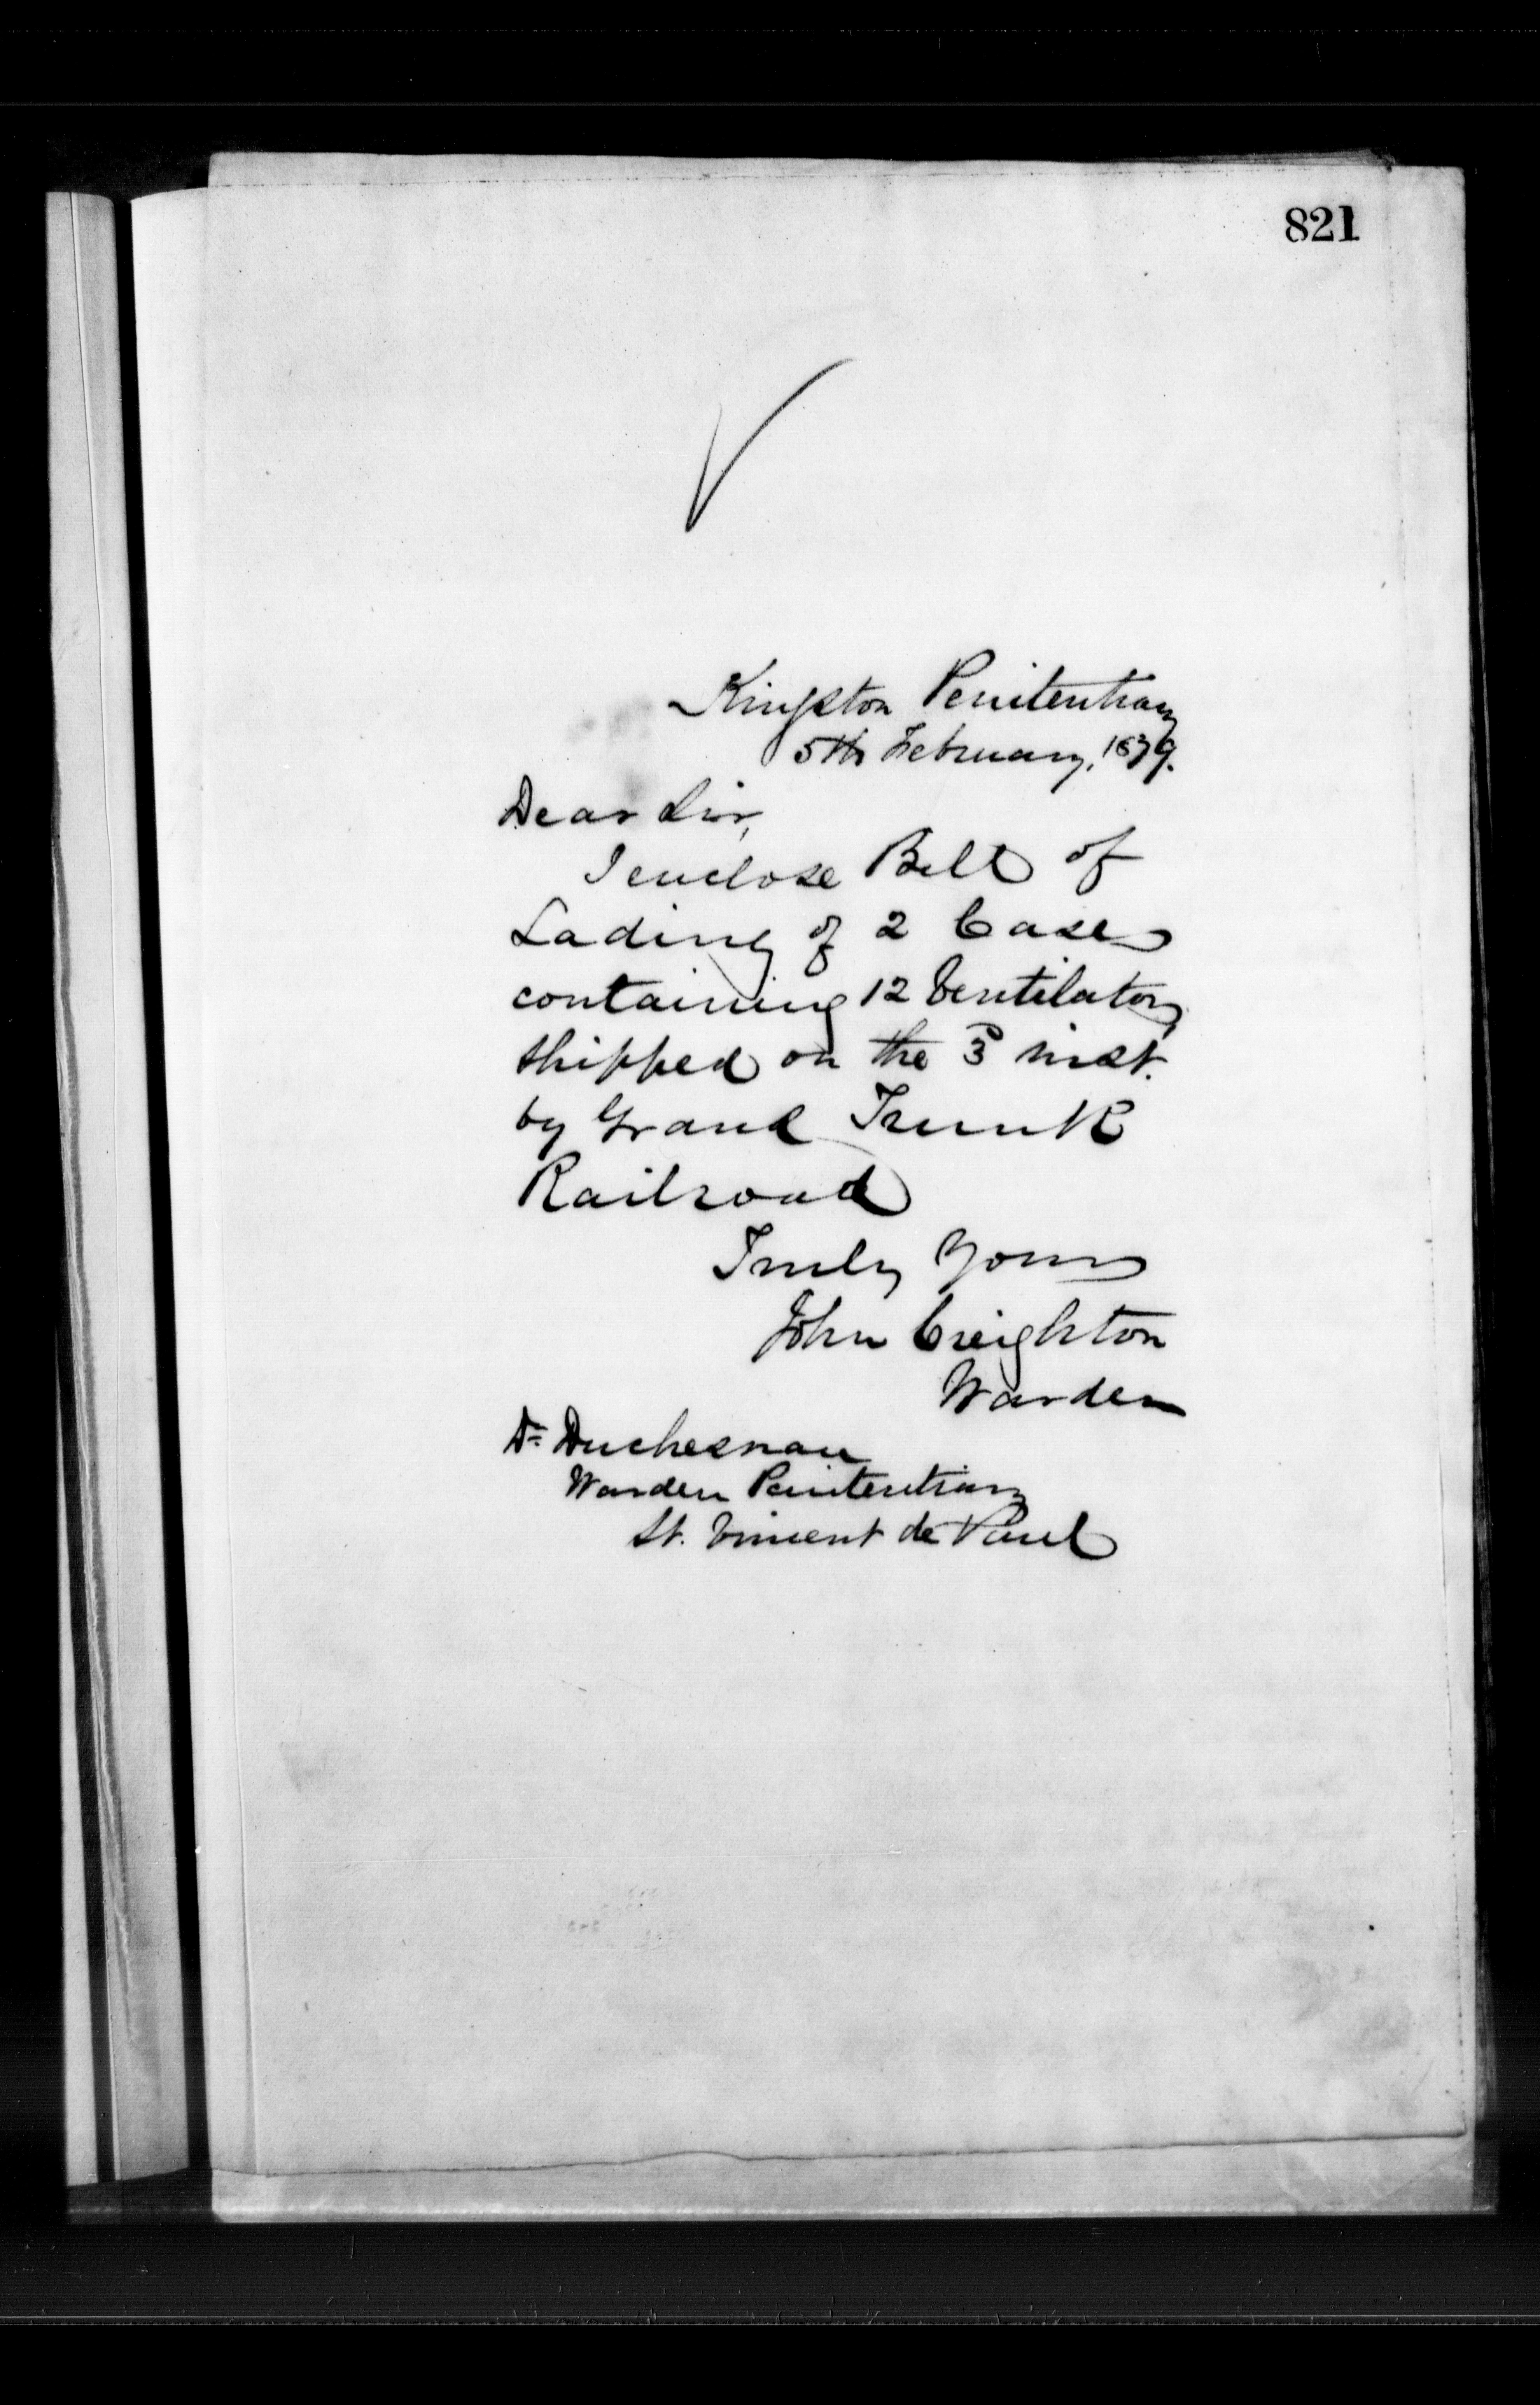 821
Kingston Penitentiary
5th February, 1879.
Dear Sir,
I enclose Bill of
Lading of 2 Cases
containing 12 Ventilators
shipped on the 3d inst.
by Grand Trunk
Railroad
Truly Yours
John Creighton
Warden
Dr Duchesnau
Warden Penitentiary
St. Vincent de Paul